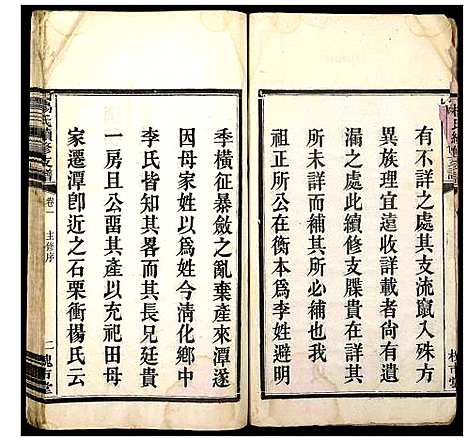 有不詳之處其支流竄入殊方
異族理宜遠收詳載者尙有遺
漏之處此續修支牒貴在詳其
所未詳而補其所必補也我
祖正所公在衡本爲李姓避明
季橫征暴斂之亂棄產來潭遂
因母家姓以爲姓今清化鄉中
李氏皆知其畧而其長兄廷貴
一房且公畱其產以充祀田母
家遷潭卽近之石栗衝楊氏云
楊氏續修支譜
卷一
主修序
二
槐市堂